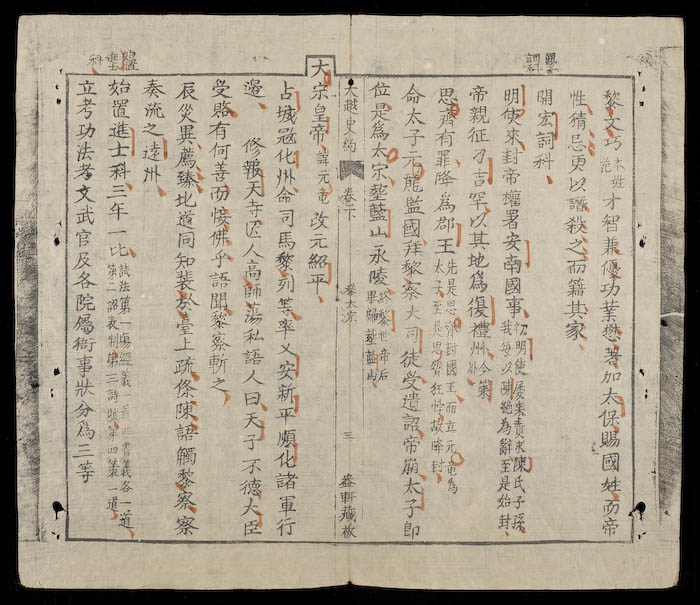 黎文巧本姓范才智兼優功業懋著加太保賜國姓而帝
性猜忌更以譖殺之而籍其家
開宏詞科
明使來封帝權署安南國事初明使屢來責求陳氏子孫
我每以陳絕為辭至是始封
帝親征刁吉罕以其地為復禮州今萊州
思齊有罪降為郡王先是思齊封國王而立元竜為
太子至是思齊狂悖故降封
命太子元龍監國拜黎察大司徒受遺詔帝崩太子即
位是為太宗塟藍山永陵終黎世帝后
畢歸塟藍山
大越史約 卷下 黎太宗 三 軒藏板
太宗皇帝諱元竜改元紹平
占城寇化州命司馬黎列等率乂安新平順化諸軍行
邊 修報天寺匠人高師蕩私語人曰天子不德大臣
受賂有何善而悛佛乎語聞黎察斬之
辰災異薦臻北道同知裴於臺上疏條陳語觸黎察察
奏流之遠州
始置進士科三年一比試法第一場經義一道四書義各一道
第二詔表制第三詩賦第四策一道
立考功法考文武官及各院屬衙事狀分為三等